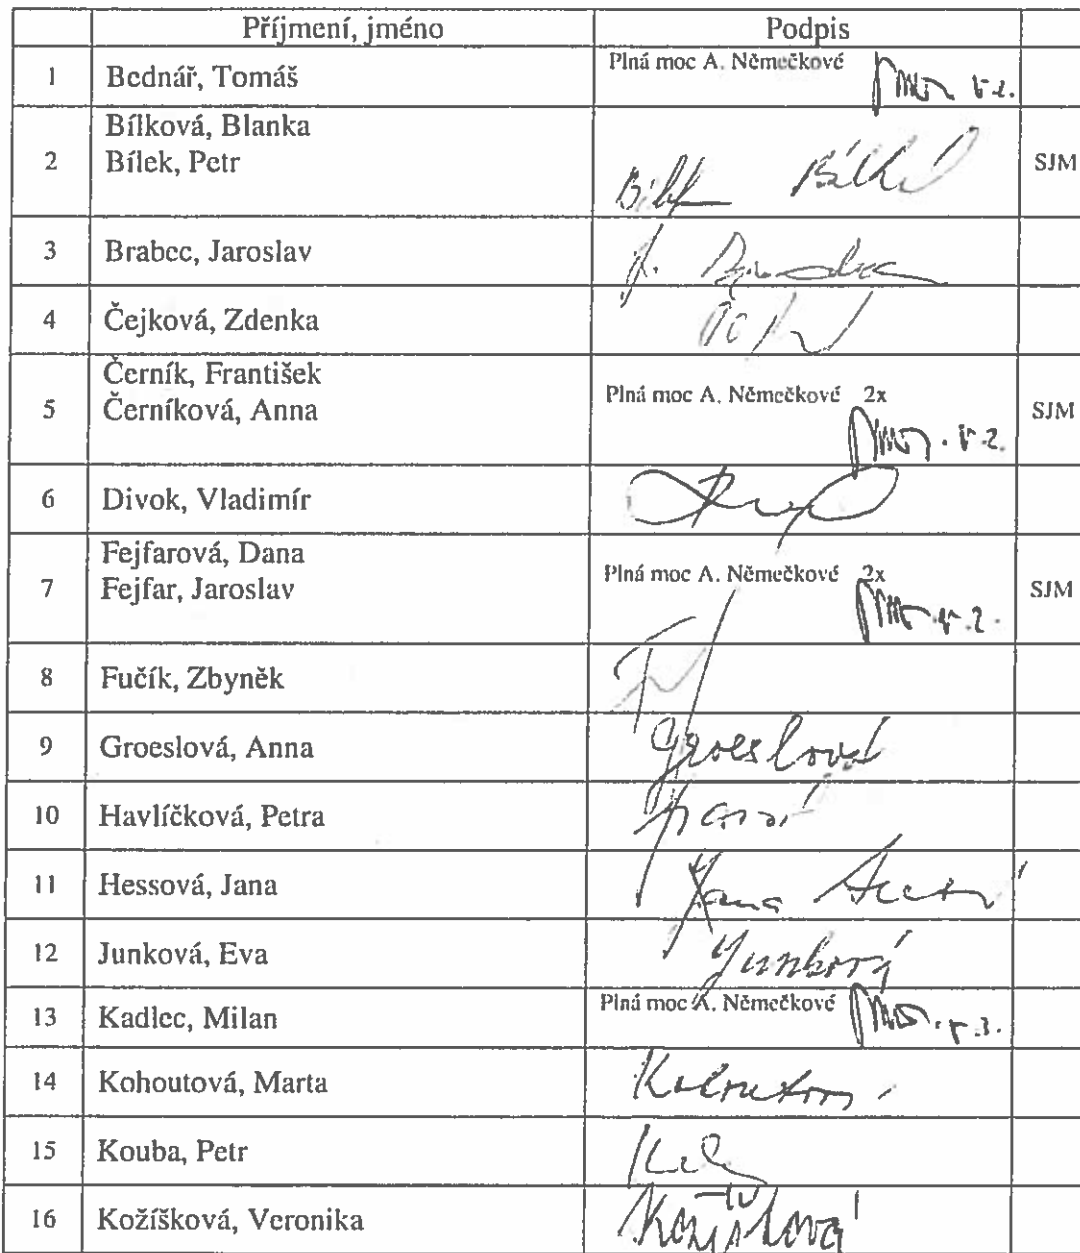 Příjmení, jméno Podpis
1 Bednář, Tomáš Plná moc A. Němečkové
Bílková, Blanka
2 Bílek, Petr SJM
3 Brabec, Jaroslav
4 Čejková, Zdenka
Černík, František
5 Černíková, Anna Plná moc A. Němečkové 2x SJM
6 Divok, Vladimír
Fejfarová, Dana
7 Fejfar, Jaroslav Plná moc A. Němečkové 2x SJM
8 Fučík, Zbyněk
9 Groeslová, Anna Groeslová
10 Havlíčková, Petra
11 Hessová, Jana Jana
12 Junková, Eva Junková
13 Kadlec, Milan Plná moc A. Němečkové
14 Kohoutová, Marta
15 Kouba, Petr
16 Kožíšková, Veronika